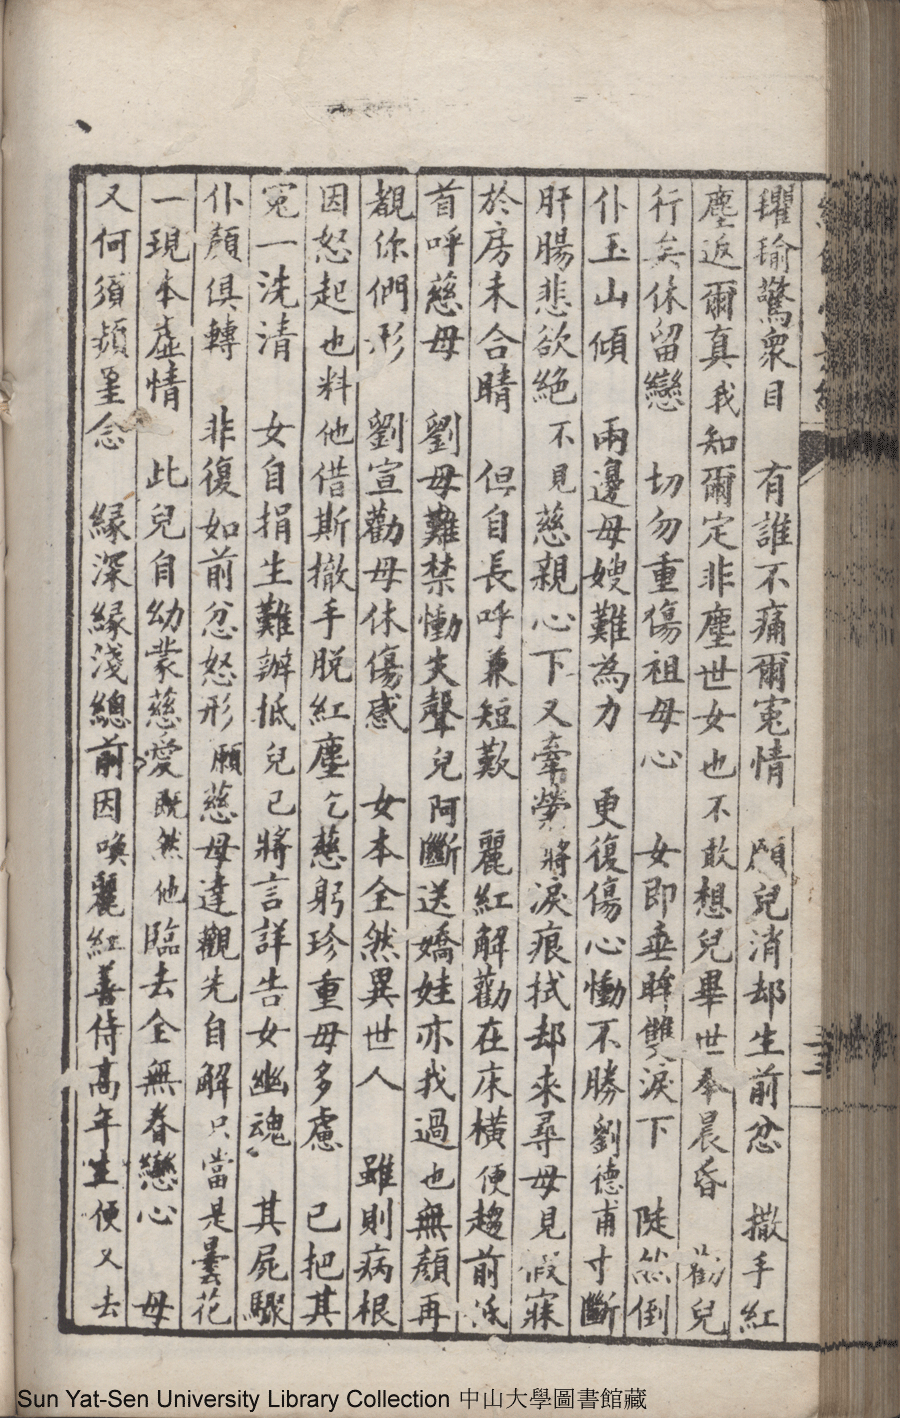 驚衆目　有誰不痛爾寃情　願兒消却生前忿　撒手紅
塵返爾真我知爾定非塵世女也不敢想兒畢世奉晨昏　勸兒
行矣休留戀　切勿重傷祖母心　女即垂眸雙淚下　陡然倒
仆玉山傾　兩邊母嫂難為力　更復傷心慟不勝劉德甫寸斷
肝腸悲欲絕不見慈親心下又牽縈將淚痕拭却來尋母見假寐
於房未合睛　但自長呼兼短歎　麗紅解勸在床橫便趨前泜
首呼慈母　劉母難禁慟失聲兒阿斷送嬌娃亦我過也無顏再
覩你們形　劉宣勸母休傷感　女本全然異世人　雖則病根
因怒起也料他借斯撤手脱紅塵乞慈躬珍重毋多慮　已把其
寃一洗清　女自捐生難辦抵兒已將言詳告女幽魂　其屍驟
仆顏俱轉　非復如前忿怒形願慈母達觀先自解只當是曇花
一現本虛情　此兒自幼蒙慈愛既然他臨去全無眷戀心　母
又何須頻罣念　緣深緣淺總前因喚麗紅善侍高年坐便又去
Sun Yat-Sen University Library Collection 中山大學圖書館藏